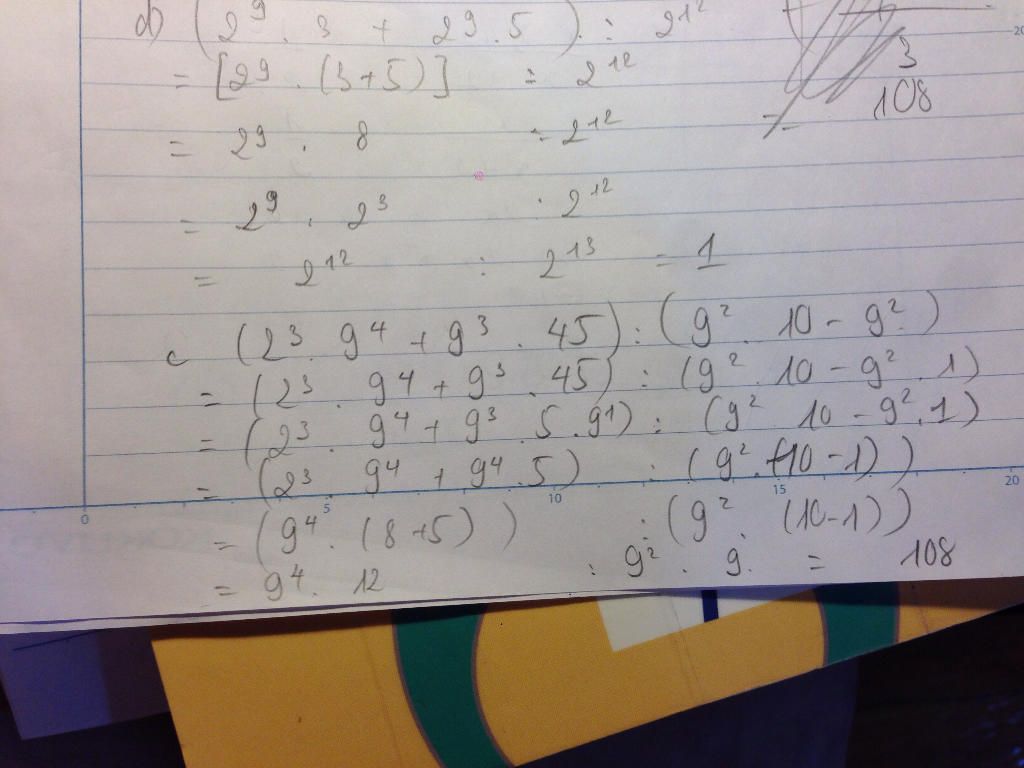 d) (2⁹ . 3 + 29 . 5) : 2¹²
= [2⁹ . (3+5)] : 2¹²
= 2⁹ . 8 : 2¹²
= 2⁹ . 2³ . 2¹²
= 2¹² : 2¹³ = 1
3
= 108
c (2³ . 9⁴ + 9³ . 45) : (9² 10 - 9²)
= (2³ . 9⁴ + 9³ . 45) : (9² . 10 - 9² . 1)
= (2³ . 9⁴ + 9³ . 5 . 9¹) : (9² 10 - 9² . 1)
= (2³ 9⁴ + 9⁴ . 5) : (9² . (10 - 1))
= (9⁴ . (8+5)) : (9² . (10-1))
= 9⁴ . 12 : 9² . 9 . = 108
0 5 10 15 20
20